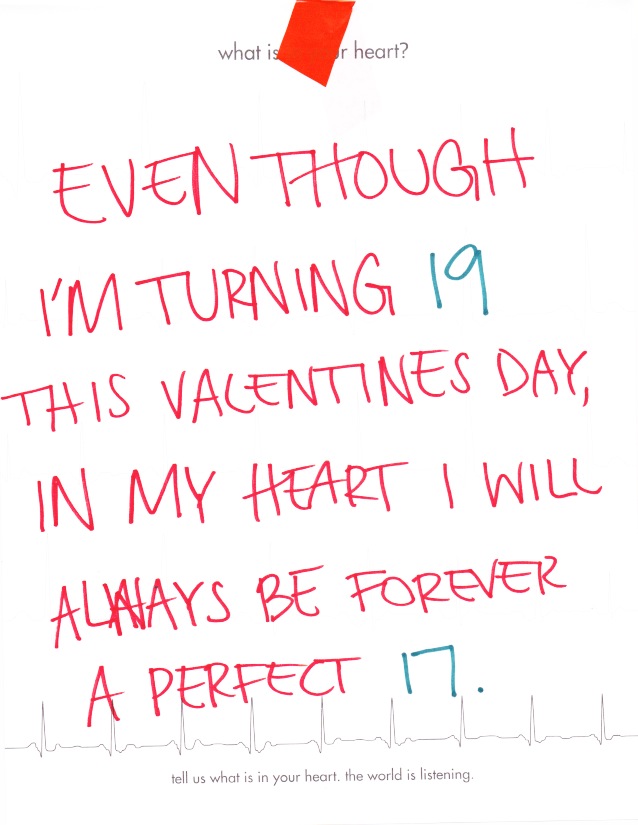 what is r heart?
EVEN THOUGH
I'M TURNING 19
THIS VALENTINES DAY,
IN MY HEART I WILL
ALWAYS BE FOREVER
A PERFECT 17.
tell us what is in your heart. the world is listening.